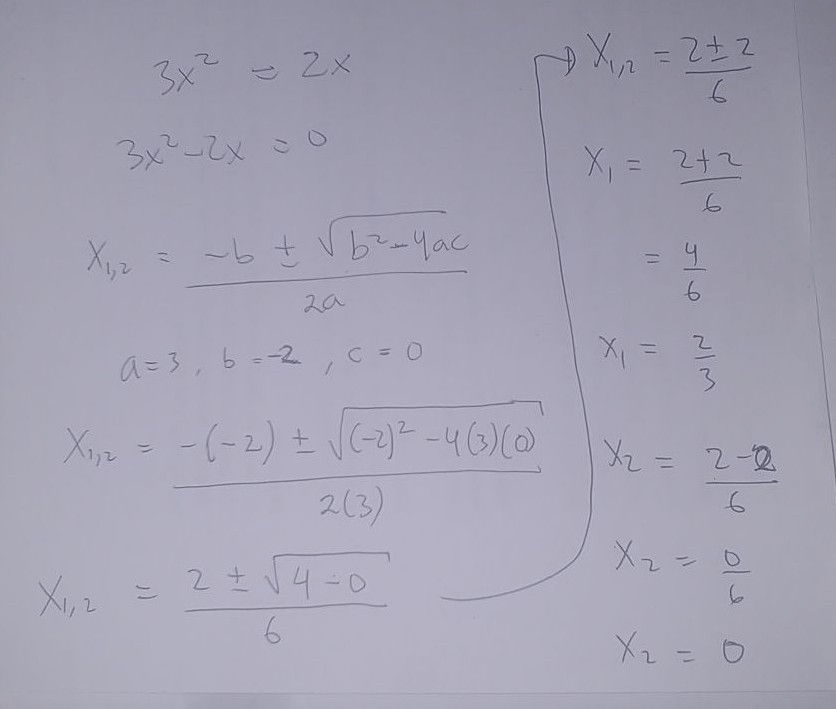 3x² = 2x
3x² - 2x = 0
X₁,₂ = (-b ± √(b² - 4ac)) / 2a
a = 3, b = -2, c = 0
X₁,₂ = (-(-2) ± √((-2)² - 4(3)(0))) / 2(3)
X₁,₂ = (2 ± √(4 - 0)) / 6
→ X₁,₂ = (2 ± 2) / 6
X₁ = (2 + 2) / 6
= 4/6
X₁ = 2/3
X₂ = (2 - 2) / 6
X₂ = 0/6
X₂ = 0